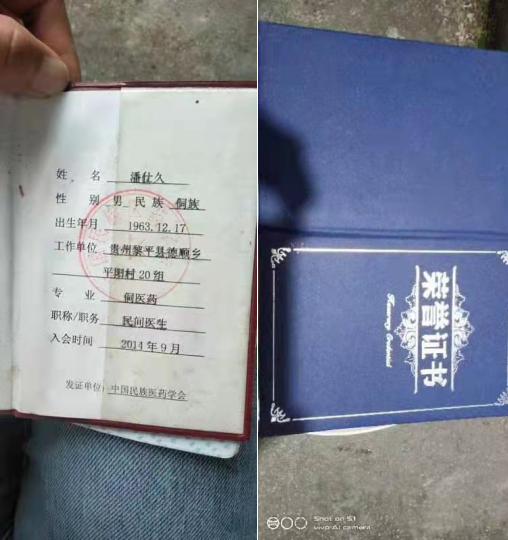 姓 名 潘仕久
性 别 男 民族 侗族
出生年月 1963.12.17
工作单位 贵州黎平县德顺乡
平阳村20组
专 业 侗医药
职称/职务 民间医生
入会时间 2014年9月
发证单位: 中国民族医药学会
荣誉证书
Shot on S1
vivo AI camera